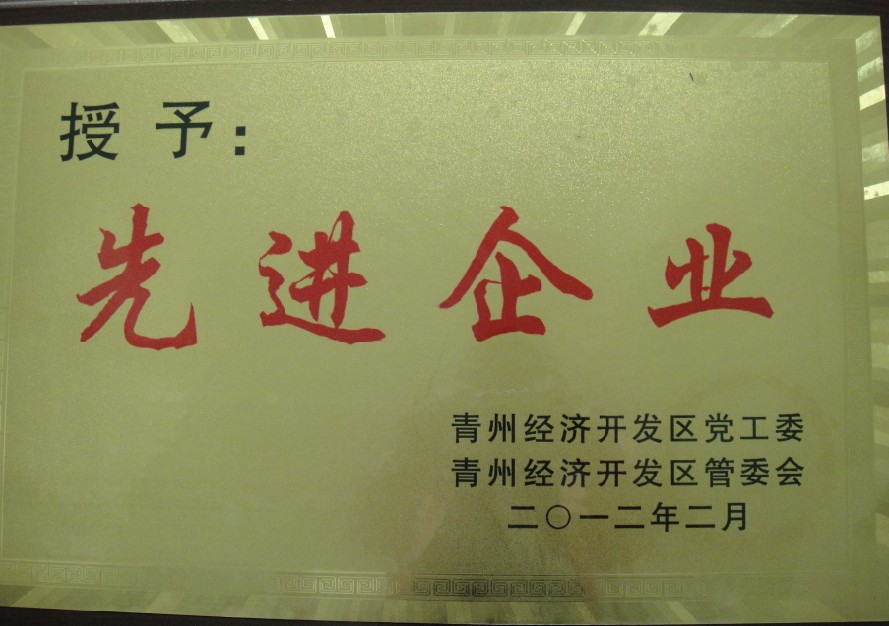 授予：
先进企业
青州经济开发区党工委
青州经济开发区管委会
二〇一二年二月